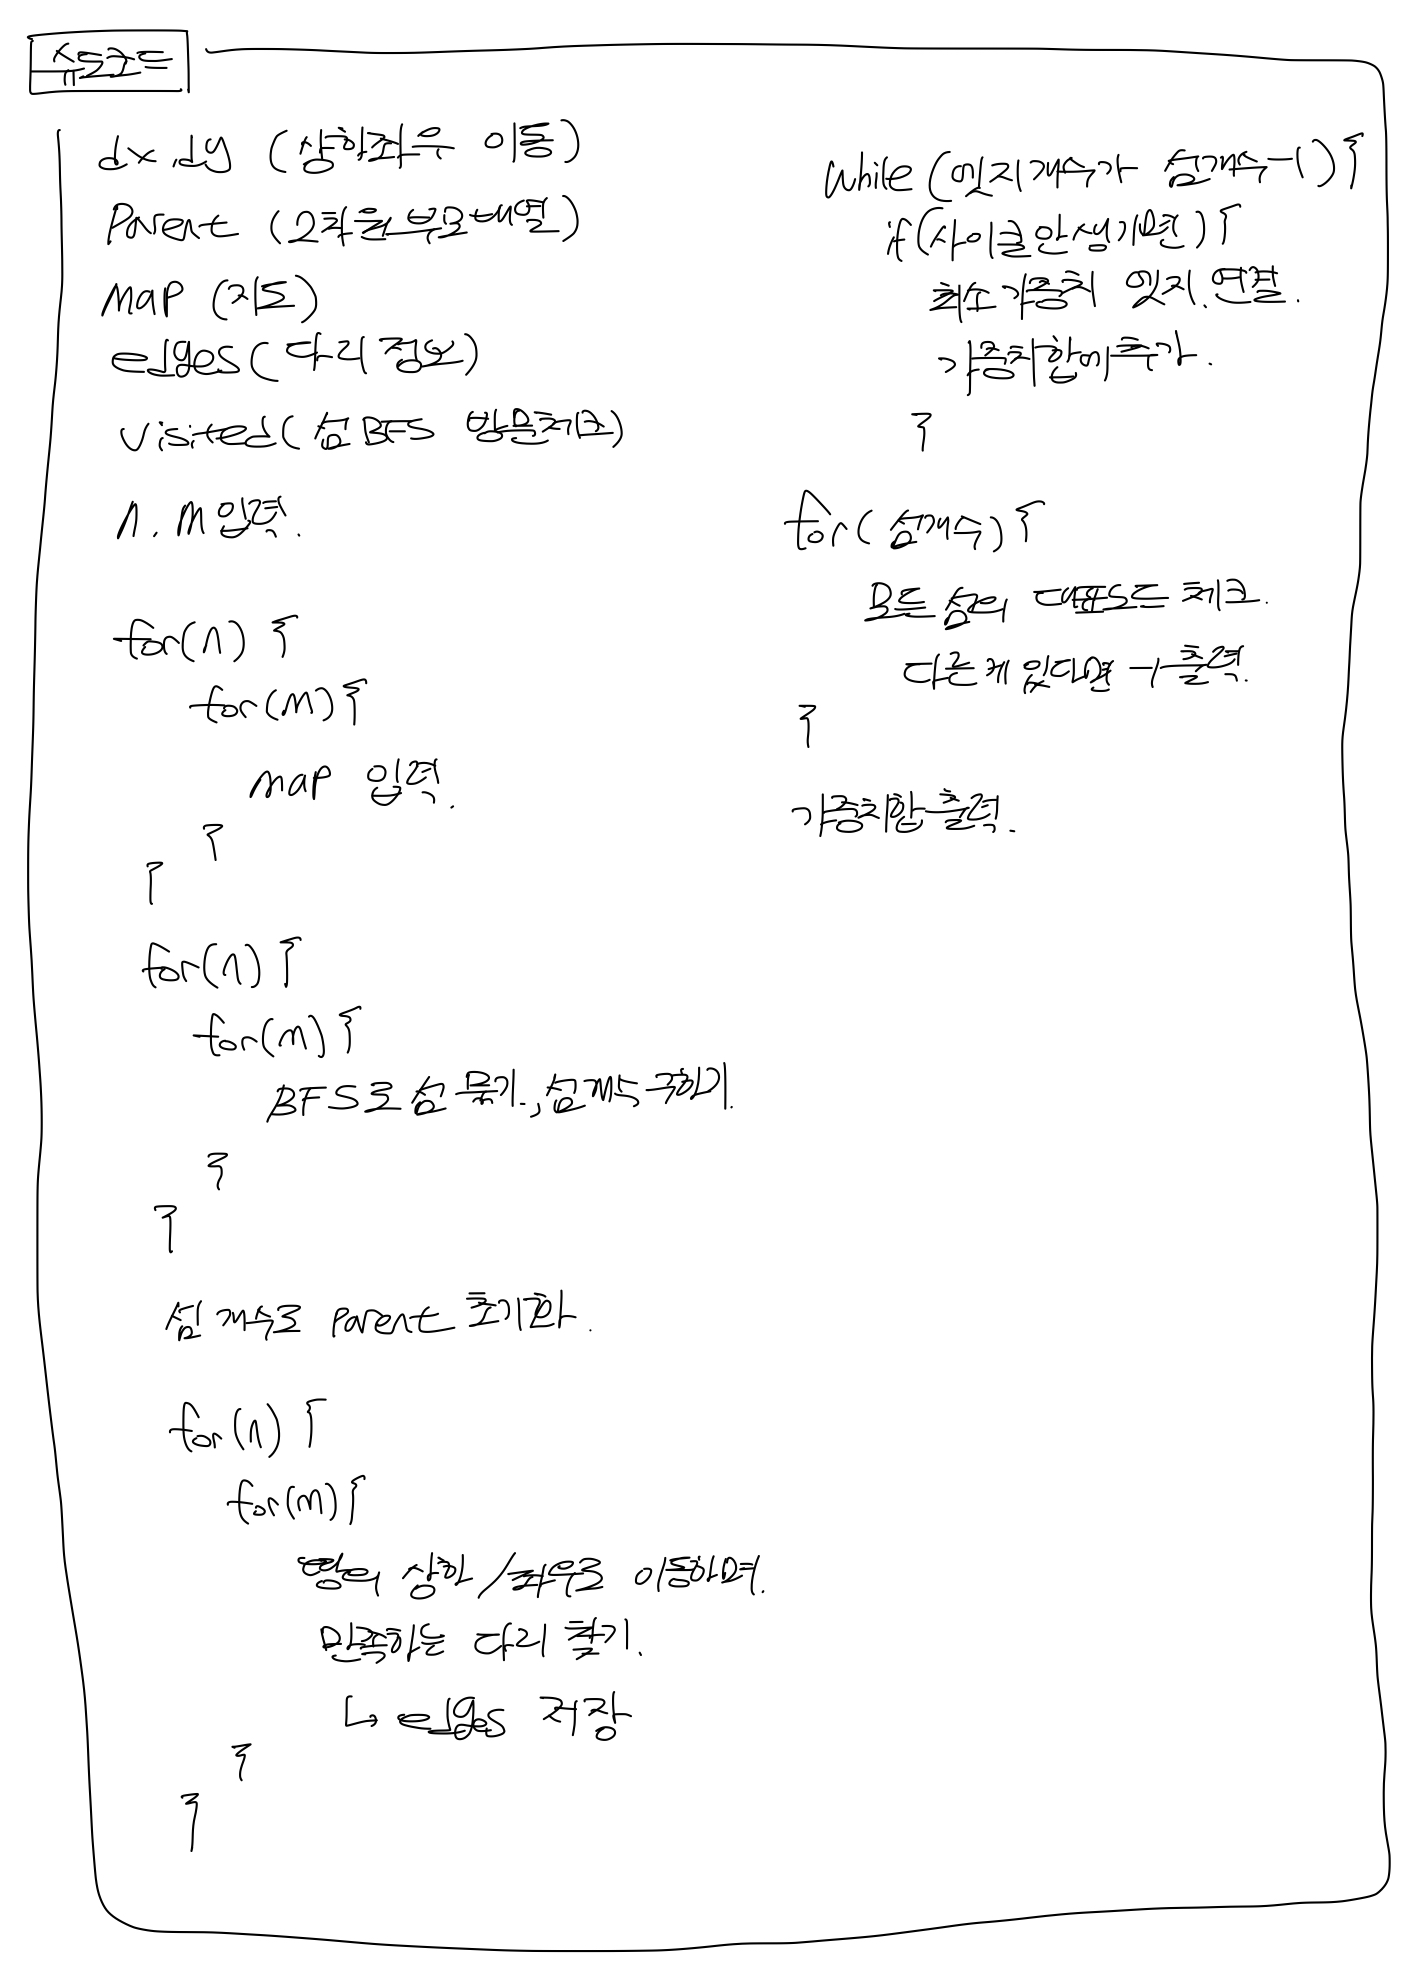 슈도코드
dx, dy (상하좌우 이동)
Parent (2차원 부모배열)
map (지도)
edges (다리 정보)
visited (섬 BFS 방문체크)
n, m 입력.
for(n) {
for(m) {
map 입력.
}
}
for(n) {
for(m) {
BFS로 섬 묶기., 섬 개수 구하기.
}
}
섬 개수로 Parent 초기화.
for(n) {
for(m) {
땅의 상하/좌우로 이동하며.
만족하는 다리 찾기.
↳ edges 저장
}
}
while (엣지개수가 섬개수-1) {
if(사이클안생기면) {
최소가중치 엣지.연결.
가중치합에추가.
}
for(섬개수) {
모든 섬의 대표노드 체크.
다른게 있다면 -1 출력.
}
가중치합출력.